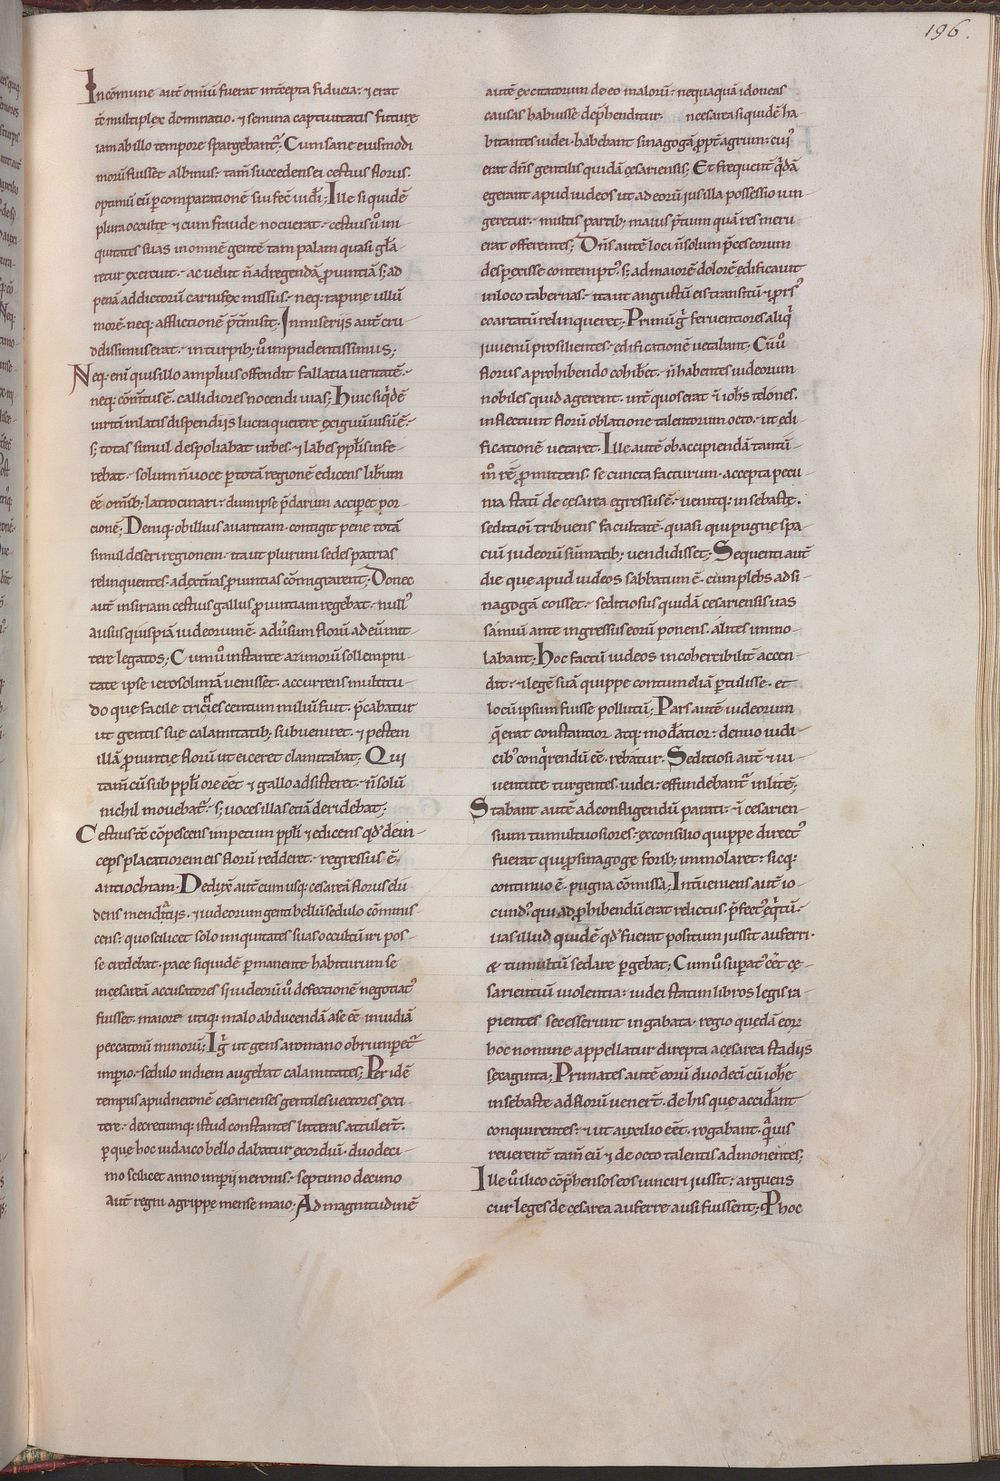 196.
In cōmune autē omniū fuerat intcepta fiducia: ⁊ erat
tē multiplex dominatio. ⁊ semina captiuitatis future
iam ab illo tempore spargebant̃; Cum sane eiusmodi
morū fuisset albinus: tam̄ succedens ei cestius florus.
optimū eū p comparationē sui fec̄ uidi; Ille siquidē
plura occulte ⁊ cum fraude nocuerat: cestius ů ini
quitates suas in omnē gentē tam palam quasi glā
retur exercuit: ac uelut ñ ad regendā puintiā s; ad
penā addictorū carnifex missus: neq; rapine ullū
morē neq; afflictionē p̄tmisit; In miserijs autē cru
delissimus erat: in turpib; ů impudentissimus;
Neq; enī quis illo amplius offendit fallatia ueritatē:
neq; cōmtus ē. callidiores nocendi uias; Huic siqdē
uiritī inlatis dispendijs lucra querere exiguū uisū ē:
s; totas simul despoliabat urbes: ⁊ labes ppłi infe
rebat: solum ñ uoce p totā regionē edicens libm
ēē omīb; latrocinari: dum ipse p̄darum accipet por
tionē; Deniq; ob illius auaritiam contigit pene totā
simul deseri regionem: ita ut plurimi sedes patrias
relinquentes. ad ext̃as puintias cōmigrarent; Donec
autē in siriam cestius gallus puintiam regebat: null'
ausus quispiā iudeorum ē aduersum florū ad eū mit
tere legatos; Cum ů instante azimorū sollempni
tate ipse ierosolimā uenisset. accurrens multitu
do que facile tricies centum miliū fuit: p̄cabatur
ut gentis sue calamitatib; subueniret. ⁊ pestem
illā prouintie florū ut eiceret clamitabat; Qui
tam̄ cū sub ppłi ore eēt ⁊ gallo adsisteret: ñ solū
nichil mouebat̃: s; uoces illas etiā deridebat;
Cestius tē cōpescens impetum ppłi ⁊ edicens qđ dein
ceps placatiorem eis florū redderet: regressus ē
antiochiam; Deduxit autē eum usq; cesareā florus elu
dens mendatijs. ⁊ iudeorum genti bellū sedulo cōminis
cens: quo scilicet solo iniquitates suas occultū iri pos
se credebat. pace siquidē p manente habiturum se
in cesareā accusatores si iudeorū ů defectionē negotiat'
fuisset. maiore utiq; malo abducendā a se ēē inuidiā
peccatorū minorū; Igr̄ ut gens a romano obrumpet̃
imp̄io: sedulo in diem augebat calamitates; Per idē
tempus apud neronē cesarienses gentiles uectores exti
tere: decretumq; istud constantes litteras attulert̄.
p que hoc iudaico bello dabatur exordiū. duodeci
mo scilicet anno imp̄ij neronis: septimo decimo
autē regni agrippe mense maio; Ad magnitudinē
autē excitatorum de eo malorū: nequaquā idoneas
causas habuisse dep̄henditur: necesarea siquidē ha
bitantes iudei. habebant sinagogā ppt̃ agrum: cui'
erat dñs gentilis quidā cesariensis; Et frequent̃ q̄dā
egerant apud iudeos ut ad eorū ius illa possessio iun
geretur. multis partib; maius p̄tium quā res meru
erat offerentes; Dñs autē loci ñ solum p̄ces eorum
despexisse contempt'. s; ad maiorē dolorē edificauit
in loco tabernas: ita ut angustū eis transitū ⁊ prs'
coartatū relinqueret; Primū g̃ feruentiores aliq̃
iuuenū prosilientes. edificationē uetabant; Cū ů
florus a prohibendo cohib̄et: ñ habentes iudeorum
nobiles quid agerent. int̃ quos erat ⁊ iohs telones.
inflectunt florū oblatione talentorum octo. ut edi
ficationē uetaret; Ille autē ob accipiendā tantū
m̊ rē pmittens. se cuncta facturum. accepta pecu
nia statī de cesarea egressus ē. uenitq; in sebaste.
seditioī tribuens facultatē. quasi qui pugne spa
ciū iudeorū sum̄atib; uendidisset; Sequenti autē
die que apud iudeos sabbatum ē. cum plebs ad si
nagogā coisset: seditiosus quidā cesariensis uas
samiū ante ingressus eorū ponens. alites inmo
labant; Hoc factū iudeos incohercibilit̃ accen
dit: ⁊ legē suā quippe contumeliā ptulisse. et
locū ipsum fuisse pollutū; Pars autē iudeorum
q̄ erat constantior atq; modatior: denuo iudi
cib' conqrendū ēē. rebatur: Seditiosi autē ⁊ iu
uentute turgentes. iudei effundebant̃ in lite;
Stabant autē ad confligendū parati: ⁊ cesarien
sium tumultuosiores: ex consilio quippe direct'
fuerat qui p sinagoge forib; immolaret: sicq;
continuo ē. pugna cōmissa; Int̃ueniens autē io
cund'. qui ad phibendū erat relictus. p̄fect' eq̄tū:
uas illud quidē qđ fuerat positum iussit auferri.
& tumultū sedare pgebat; Cum ů superat' eēt ce
sarientiū uiolentia: iudei statim libros legis ra
pientes secesserunt in gabata. regio quedā eor
hoc nomine appellatur dirempta a cesarea stadijs
sexaginta; Primates autē eorū duodecī cū iohē
in sebaste ad florū uenert̄. de his que accidant
conquirentes: ⁊ ut auxilio eēt. rogabant. quis
reuerent̃ tam̄ eū ⁊ de octo talentis admonentes;
Ille ů ilico cōp̄hensos eos uinciri iussit: arguens
cur leges de cesarea auferre ausi fuissent; P hoc